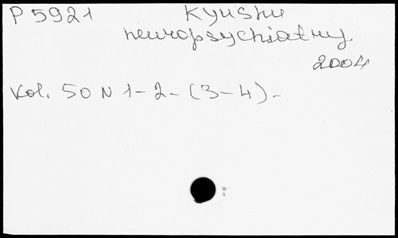 P 5921 Kyushu
neuropsychiatry.
2004
Vol. 50 N 1-2-(3-4)-